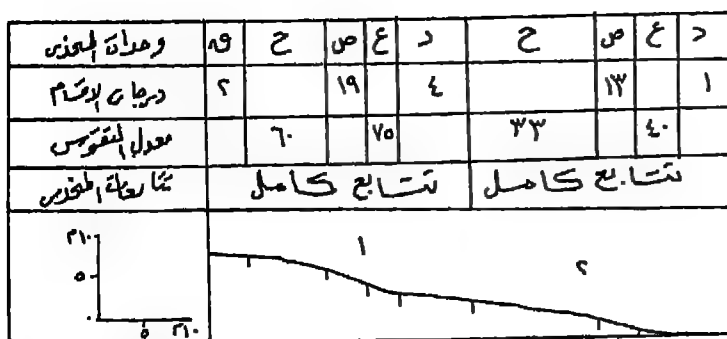 وحدات المنحدر ق ح ص ع د ح ص ع د
درجات الاقسام ٢ ١٩ ٤ ١٣ ١
معدل التقوس ٦٠ ٧٥ ٣٣ ٤٠
تتابعات المنحدر تتابع كامل تتابع كامل
١٠م
٥
٠
٥ ١٠م
١
٢